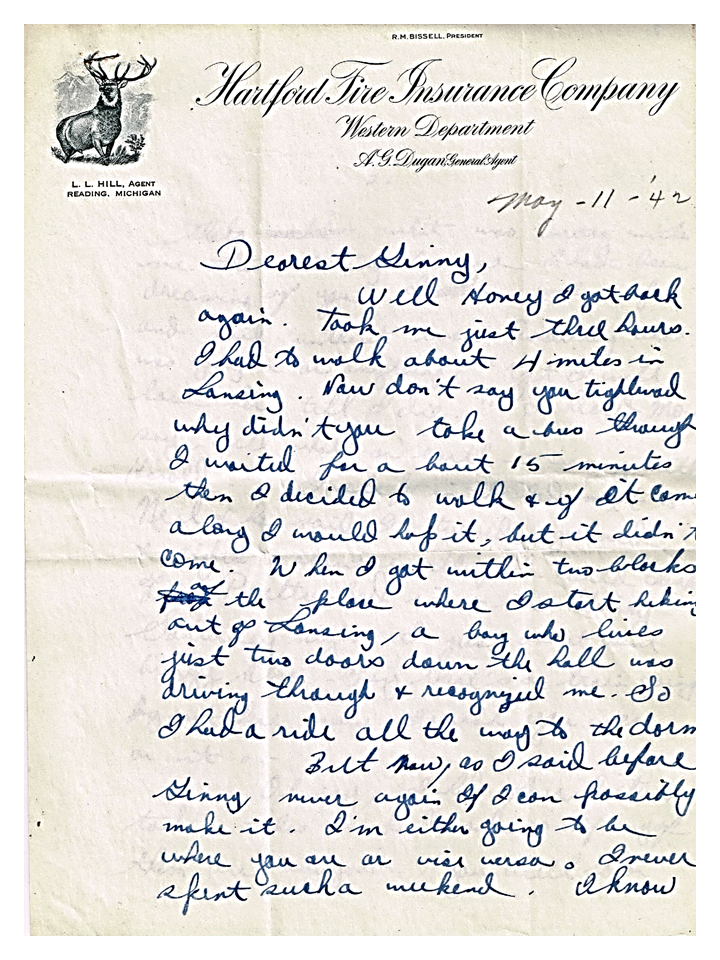 R.M. BISSELL, PRESIDENT
Hartford Fire Insurance Company
Western Department
A.G. Dugan, General Agent
L. L. HILL, AGENT
READING, MICHIGAN
May - 11 - '42
Dearest Ginny,
Well Honey I got back
again. Took me just three hours.
I had to walk about 4 miles in
Lansing. Now don't say you tightwad
why didn't you take a bus through
I waited for a bout 15 minutes
then I decided to walk & if it came
along I would hop it, but it didn't
come. When I got within two blocks
of the place where I start hiking
out of Lansing, a boy who lives
just two doors down the hall was
driving through & recognized me. So
I had a ride all the way to the dorm
But now, as I said before
Ginny never again If I can possibly
make it. I'm either going to be
where you are or vise versa. I never
spent such a weekend. I know